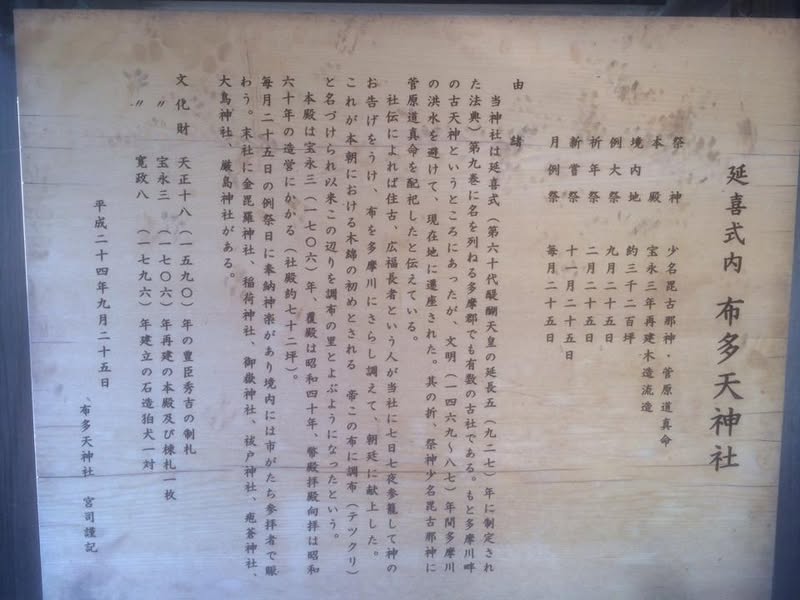 延喜式内 布多天神社
祭神 少名毘古那神・菅原道真命
本殿 宝永三年再建木造流造
境内地 約三千二百坪
例大祭 九月二十五日
祈年祭 二月二十五日
新嘗祭 十一月二十五日
月例祭 毎月二十五日
由緒
当神社は延喜式（第六十代醍醐天皇の延長五（九二七）年に制定され
た法典）第九巻に名を列ねる多摩郡でも有数の古社である。もと多摩川畔
の古天神というところにあったが、文明（一四六九〜八七）年間多摩川
の洪水を避けて、現在地に遷座された。其の折、祭神少名毘古那神に
菅原道真命を配祀したと伝えている。
社伝によれば往古、広福長者という人が当社に七日七夜参籠して神の
お告げをうけ、布を多摩川にさらし調えて、朝廷に献上した。
これが本朝における木綿の初めとされる 帝この布に調布（テツクリ）
と名づけられ以来この辺りを調布の里とよぶようになったという。
本殿は宝永三（一七〇六）年、覆殿は昭和四十年、幣殿拝殿向拝は昭和
六十年の造営にかかる（社殿約七十二坪）。
毎月二十五日の例祭日に奉納神楽があり境内には市がたち参拝者で賑
わう。末社に金毘羅神社、稲荷神社、御嶽神社、祓戸神社、疱瘡神社、
大鳥神社、厳島神社がある。
文化財 天正十八（一五九〇）年の豊臣秀吉の制札
〃 宝永三（一七〇六）年再建の本殿及び棟札一枚
〃 寛政八（一七九六）年建立の石造狛犬一対
平成二十四年九月二十五日
布多天神社 宮司謹記